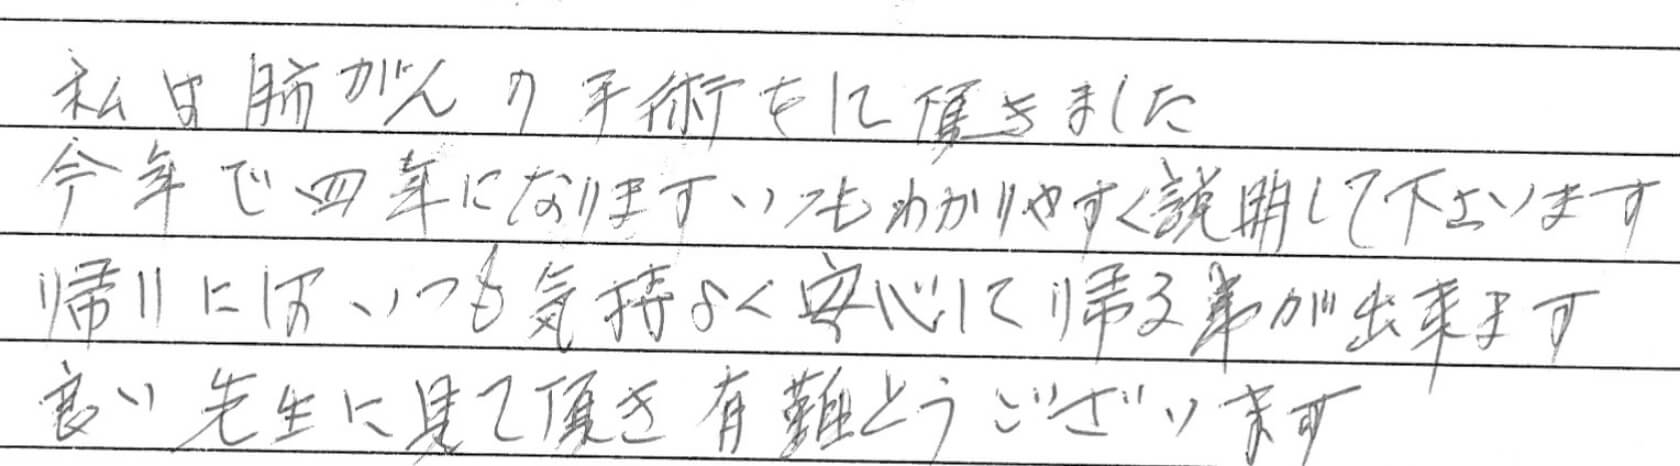 私は肺がんの手術をして頂きました
今年で四年になりますいつもわかりやすく説明して下さいます
帰りにはいつも気持よく安心して帰る事が出来ます
良い先生に見て頂き有難とうございます